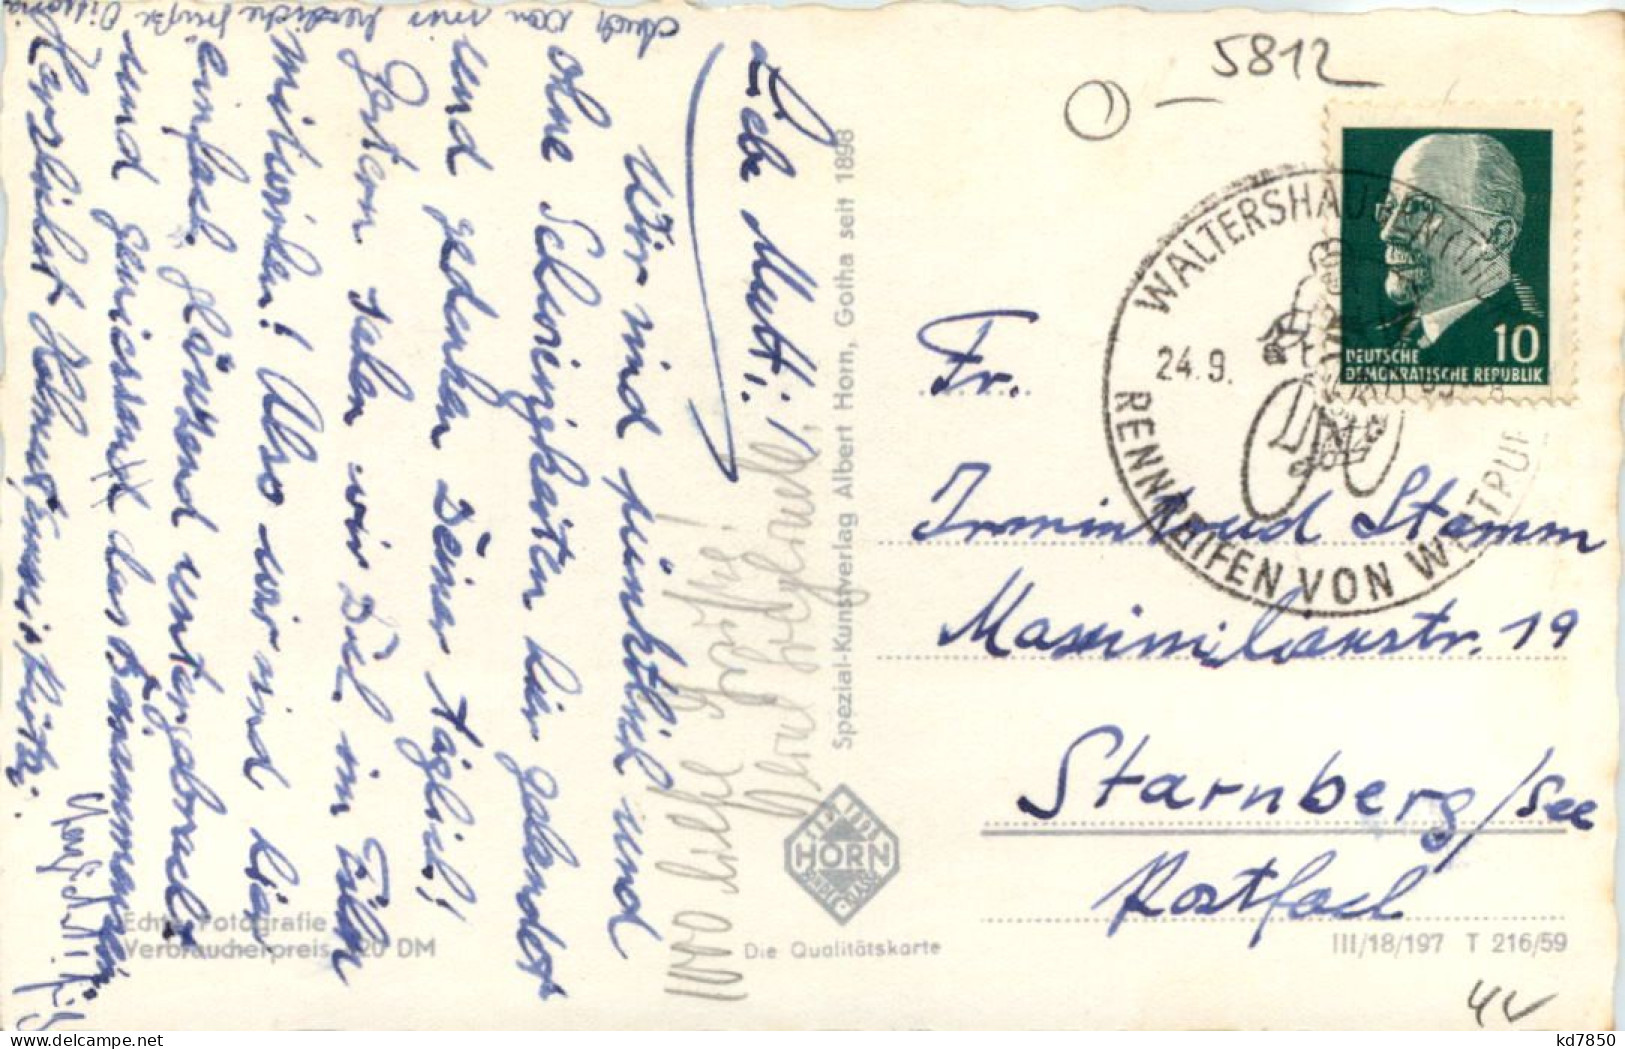 Liebe Mutti!
Wir sind pünktlich und
ohne Schwierigkeiten hier gelandet
und gedenken Deiner täglich!
Gestern sahen wir Dich im Film
mitwirken! Also wir sind hier
einfach glänzend untergebracht
und geniessen das
Herzlichst Helmut
Auch von mir herzliche Grüße
1000 liebe Grüße!
Spezial-Kunstverlag Albert Horn, Gotha seit 1898
HORN
Echte Fotografie
Verbraucherpreis 20 DM
Die Qualitätskarte
5812
WALTERSHAUSEN (THÜ
24.9.
RENNREIFEN VON WELTRUF
10
DEUTSCHE
DEMOKRATISCHE REPUBLIK
Fr.
Irmintraud Stamm
Maximilianstr. 19
Starnberg/See
Postfach
III/18/197 T 216/59
kd7850